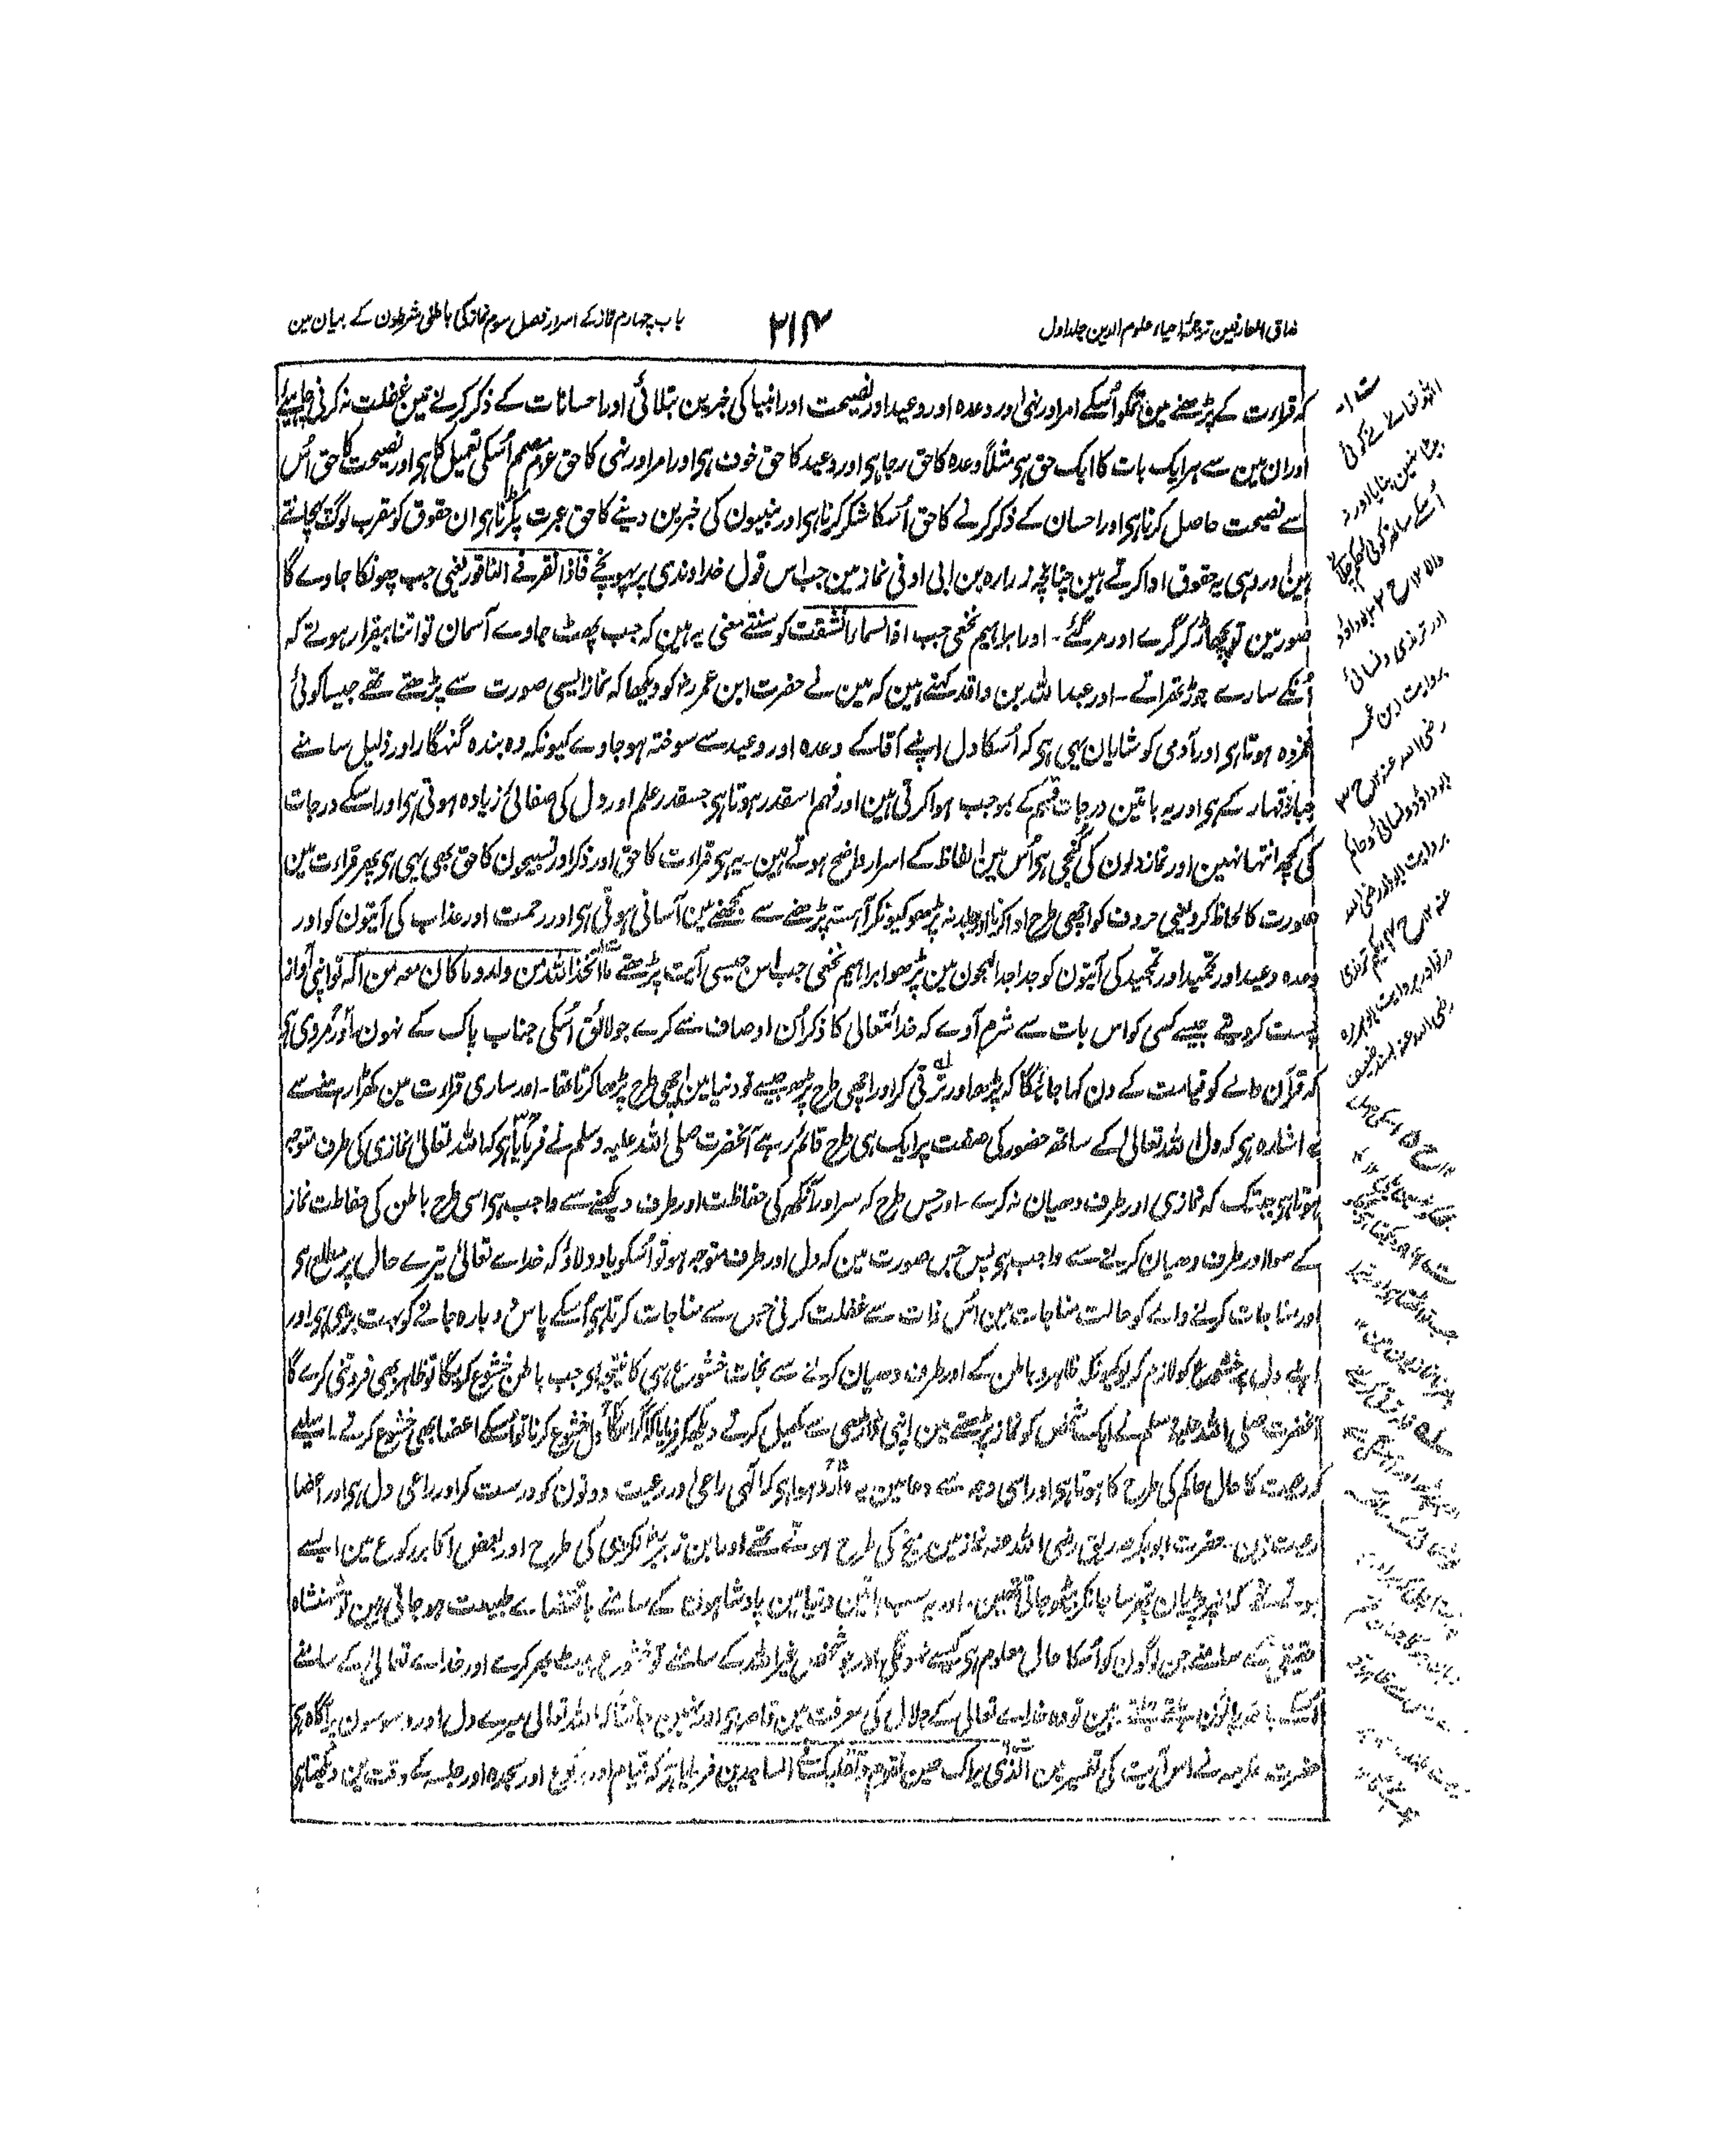 مذاق العارفین ترجمۂ احیاء علوم الدین جلد اول
۲۱۴
باب چہارم نماز کے اسرار فصل سوم نماز کی باطنی شرطون کے بیان مین
کہ قراءت کے پڑھنے مین تمکو اُسکے امر اور نہی اور وعدہ اور وعید اور نصیحت اور انبیا کی خبرین بتلائی اور احسانات کے ذکر کرنے مین غفلت نہ کرنی چاہیے
اور ان مین سے ہر ایک بات کا ایک حق ہی مثلاً وعدہ کا حق رجا ہی اور وعید کا حق خوف ہی اور امر اور نہی کا حق عزم مصمم اُسکی تعمیل کا ہی اور نصیحت کا حق اُس
سے نصیحت حاصل کرنا ہی اور احسان کے ذکر کرنے کا حق اُسکا شکر کرنا ہی اور نبیون کی خبرین دینے کا حق عبرت پکڑنا ہی ان حقوق کو مقرب لوگ پہچانتے
ہین اور وہی یہ حقوق ادا کرتے ہین چنانچہ زرارہ بن ابی اوفی نماز مین جب اس قول خداوندی پر پہونچے فاذا نقر فی الناقور یعنی جب پھونکا جاوے گا
صور مین تو پچھاڑ کر گرے اور مر گئے ۔ اور ابراہیم نخعی جب اذا السماء انشقت کو سنتے معنی یہ ہین کہ جب پھٹ جاوے آسمان تو اتنا بیقرار ہوتے کہ
اُنکے سارے جوڑ تھراتے ۔ اور عبداللہ بن واقد کہتے ہین کہ مین نے حضرت ابن عمر رضہ کو دیکھا کہ نماز ایسی صورت سے پڑھتے تھے جیسا کوئی
غمزدہ ہوتا ہی اور آدمی کو شایان یہی ہی کہ اُسکا دل اپنے آقا کے وعدہ اور وعید سے سوختہ ہو جاوے کیونکہ وہ بندہ گنہگار اور ذلیل سامنے
جبار قہار کے ہی اور یہ باتین درجات فہم کے بموجب ہوا کرتی ہین اور فہم اسقدر ہوتا ہی جسقدر علم اور دل کی صفائی زیادہ ہوتی ہی اور اسکے درجات
کی کچھ انتہا نہین اور نماز دلون کی کنجی ہی اُس مین الفاظ کے اسرار واضح ہوتے ہین ۔ یہ ہی قراءت کا حق اور ذکر اور تسبیحون کا حق بھی یہی ہی پھر قراءت مین
صورت کا لحاظ کرو یعنی حروف کو اچھی طرح ادا کرنا اور جلد نہ پڑھو کیونکر آہستہ پڑھنے سے سمجھنے مین آسانی ہوتی ہی اور رحمت اور عذاب کی آیتون کو اور
وعدہ وعید اور تحمید اور تمجید کی آیتون کو جدا جدا لہجون مین پڑھو ابراہیم نخعی جب اس جیسی آیت پڑھتے ما اتخذ اللہ من ولد وما کان معہ من الہ تو اپنی آواز
پست کر دیتے جیسے کسی کو اس بات سے شرم آوے کہ خدا تعالی کا ذکر اُن اوصاف سے کرے جو لائق اُسکی جناب پاک کے نہون اور مروی ہی
کہ قرآن والے کو قیامت کے دن کہا جائیگا کہ پڑھ اور ترقی کر اور اچھی طرح پڑھ جیسے تو دنیا مین اچھی طرح پڑھا کرتا تھا ۔ اور ساری قراءت مین کھڑا رہنے سے
یہ اشارہ ہی کہ دل اللہ تعالی کے ساتھ حضور کی صفت پر ایک ہی طرح قائم رہے آنحضرت صلی اللہ علیہ وسلم نے فرمایا ہی کہ اللہ تعالیٰ نمازی کی طرف متوجہ
ہوتا ہی جبتک کہ نمازی اور طرف دھیان نہ کرے ۔ اور جس طرح کہ سر اور آنکھ کی حفاظت اور طرف دیکھنے سے واجب ہی اسی طرح باطن کی حفاظت نماز
کے سوا اور طرف دھیان کرنے سے واجب ہی پس جس صورت مین کہ دل اور طرف متوجہ ہو تو اُسکو یاد دلاؤ کہ خداے تعالیٰ تیرے حال پر مطلع ہی
اور مناجات کرنے والے کو حالت مناجات مین اُس ذات سے غفلت کرنی جس سے مناجات کرتا ہی اُسکے پاس دوبارہ جانے کو بہت بری ہی اور
اپنے دل پر خشوع کو لازم کر لو کیونکہ ظاہر و باطن کے اور طرف دھیان کرنے سے نجات خشوع ہی کا نتیجہ ہی جب باطن خشوع کریگا تو ظاہر بھی فروتنی کرے گا
آنحضرت صلی اللہ علیہ وسلم نے ایک شخص کو نماز پڑھتے مین اپنی ڈاڑھی سے کھیل کرتے دیکھ کر فرمایا کہ اگر اسکا دل خشوع کرتا تو اُسکے اعضا بھی خشوع کرتے ۔ اسلیے
کہ رعیت کا حال حاکم کی طرح کا ہوتا ہی اور اسی وجہ سے دعا مین یہ وارد ہوا ہی کہ الہی راعی اور رعیت دونون کو درست کر اور راعی دل ہی اور اعضا
رعیت ہین ۔ حضرت ابوبکر صدیق رضی اللہ عنہ نماز مین میخ کی طرح ہوتے تھے اور ابن زبیر رضہ لکڑی کی طرح اور بعض اکابر رکوع مین ایسے
ہوتے تھے کہ اُنپر چڑیان پتھر سا جانکر بیٹھ جاتی تھین ۔ اور یہ سب باتین دنیا مین بادشاہون کے سامنے باقتضاے طبیعت ہو جاتی ہین تو شہنشاہ
حقیقی کے سامنے جن لوگون کو اُسکا حال معلوم ہی کیسے نہونگی اور جو شخص غیر اللہ کے سامنے تو خشوع سے پیٹ بھر کرے اور خداے تعالیٰ کے سامنے
اُسکے ہاتھ پانون ہلتے جلتے رہین تو وہ خداے تعالی کے جلال کی معرفت مین قاصر ہی اور نہین جانتا کہ اللہ تعالی میرے دل اور وسوسون پر آگاہ ہی
حضرت عکرمہ نے اس آیت کی تفسیر مین الذی یراک حین تقوم وتقلبک فی الساجدین فرمایا ہی کہ قیام اور رکوع اور سجدہ اور جلسہ کے وقت مین دیکھتا ہی
اللہ تعالے نے کوئی
بیٹا نہین بنایا اور نہ
اُسکے ساتھ کوئی
اور ترمذی و نسائی
بروایت ابن عمر
رضی اللہ عنہ ۱۲ ح ۳
ابو داؤد و نسائی و حاکم
بروایت ابوذر رضی اللہ
عنہ ۱۲ ح ۴ حکیم ترمذی
در نوادر بروایت ابو ہریرہ
رضی اللہ عنہ بسند ضعیف